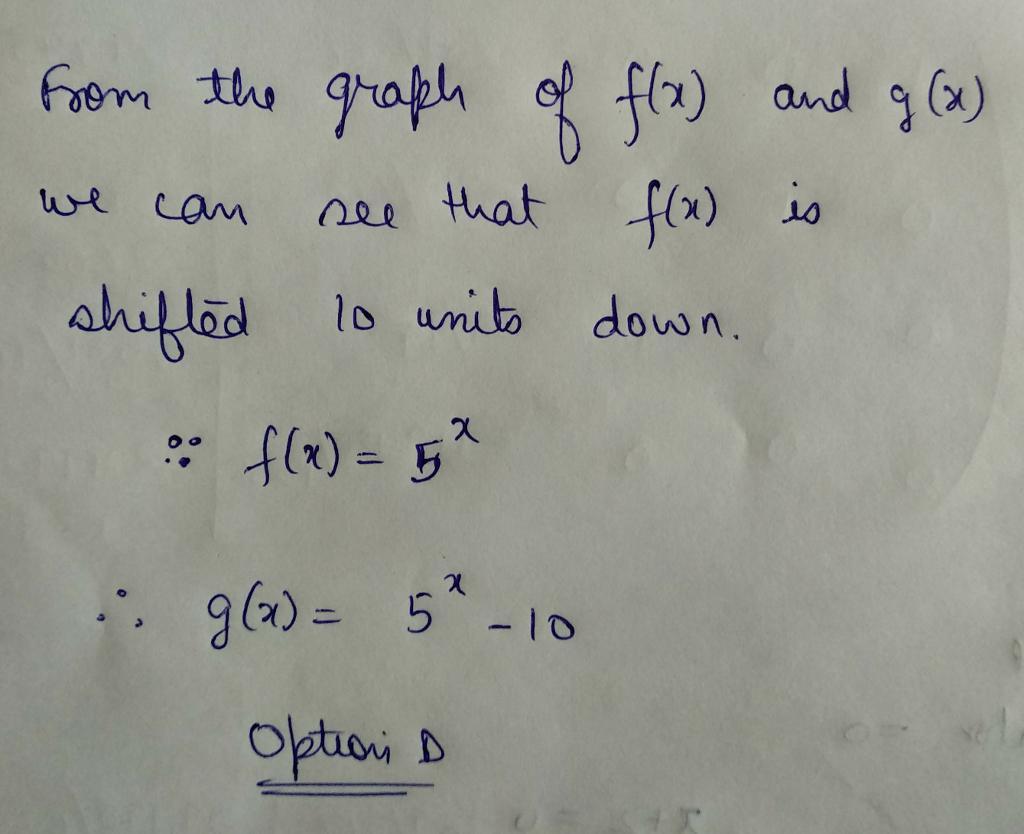 From the graph of f(x) and g(x)
we can see that f(x) is
shifted 10 units down.
∵ f(x) = 5^x
∴ g(x) = 5^x - 10
Option D